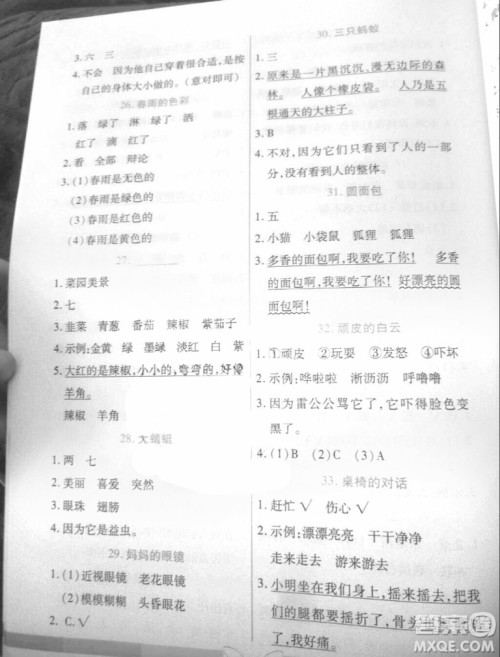 3. 六 三
4. 不会 因为他自己穿着很合适,是按
自己的身体大小做的。(意对即可)
26. 春雨的色彩
1. 落 绿了 淋 绿了 洒
红了 滴了 红了
2. 看 全部 辩论
3. (1)春雨是无色的
(2)春雨是绿色的
(3)春雨是红色的
(4)春雨是黄色的
27.
1. 菜园美景
2. 七
3. 韭菜 青葱 番茄 辣椒 紫茄子
4. 示例:金黄 绿 墨绿 淡红 白 紫
5. 大红的是辣椒,小小的,弯弯的,好像
羊角。
辣椒 羊角
28. 大蜻蜓
1. 两 七
2. 美丽 喜爱 突然
3. 眼珠 翅膀
4. 因为它是益虫。
29. 妈妈的眼镜
1. (1)近视眼镜 老花眼镜
(2)模模糊糊 头昏眼花
2. C.√
30. 三只蚂蚁
1. 三
2. 原来是一片黑沉沉、漫无边际的森
林。 人像个橡皮袋。 人乃是五
根通天的大柱子。
3. B
4. 不对,因为它们只看到了人的一部
分,没有看到人的整体。
31. 圆面包
1. 五
2. 小猫 小袋鼠 狐狸 狐狸
3. 多香的面包啊,我要吃了你! 多香
的面包啊,我要吃了你! 好漂亮的圆
面包啊!
32. 顽皮的白云
1. ①顽皮 ②玩耍 ③发怒 ④吓坏
2. 示例:哗啦啦 淅沥沥 呼噜噜
3. 因为雷公公骂它了,它吓得脸色变
黑了。
4. (1)B (2)C (3)A
33. 桌椅的对话
1. 赶忙√ 伤心√
2. 示例:漂漂亮亮 干干净净
走来走去 游来游去
3. 小明坐在我们身上,摇来摇去,把我
们的腿都要摇折了,骨头
了,我好痛。
MXQE.COM